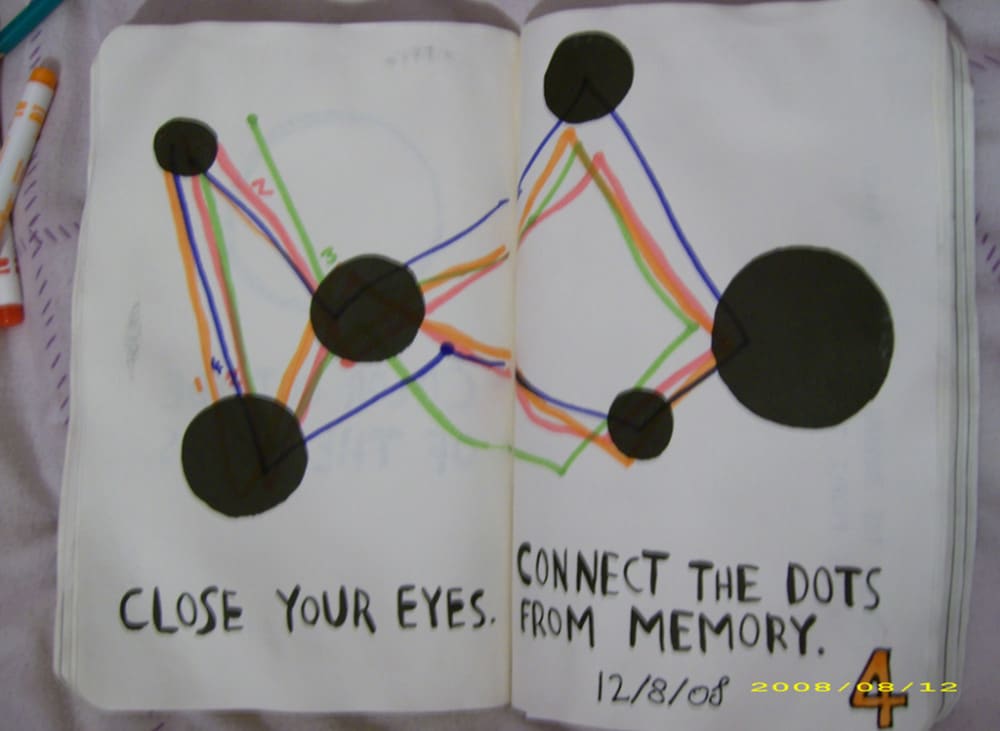 2
3
1
4
CLOSE YOUR EYES.
CONNECT THE DOTS
FROM MEMORY.
12/8/08
2008/08/12
4